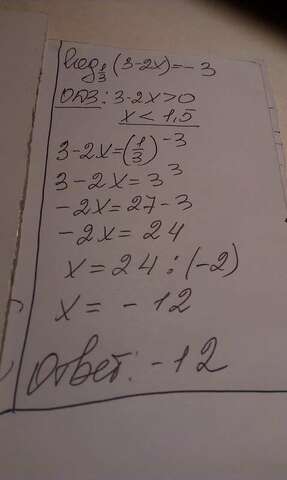 log 1/3 (3-2x)=-3
ОДЗ: 3-2x>0
x < 1,5
3-2x=(1/3)^-3
3-2x=3^3
-2x=27-3
-2x=24
x=24:(-2)
x=-12
Ответ: -12